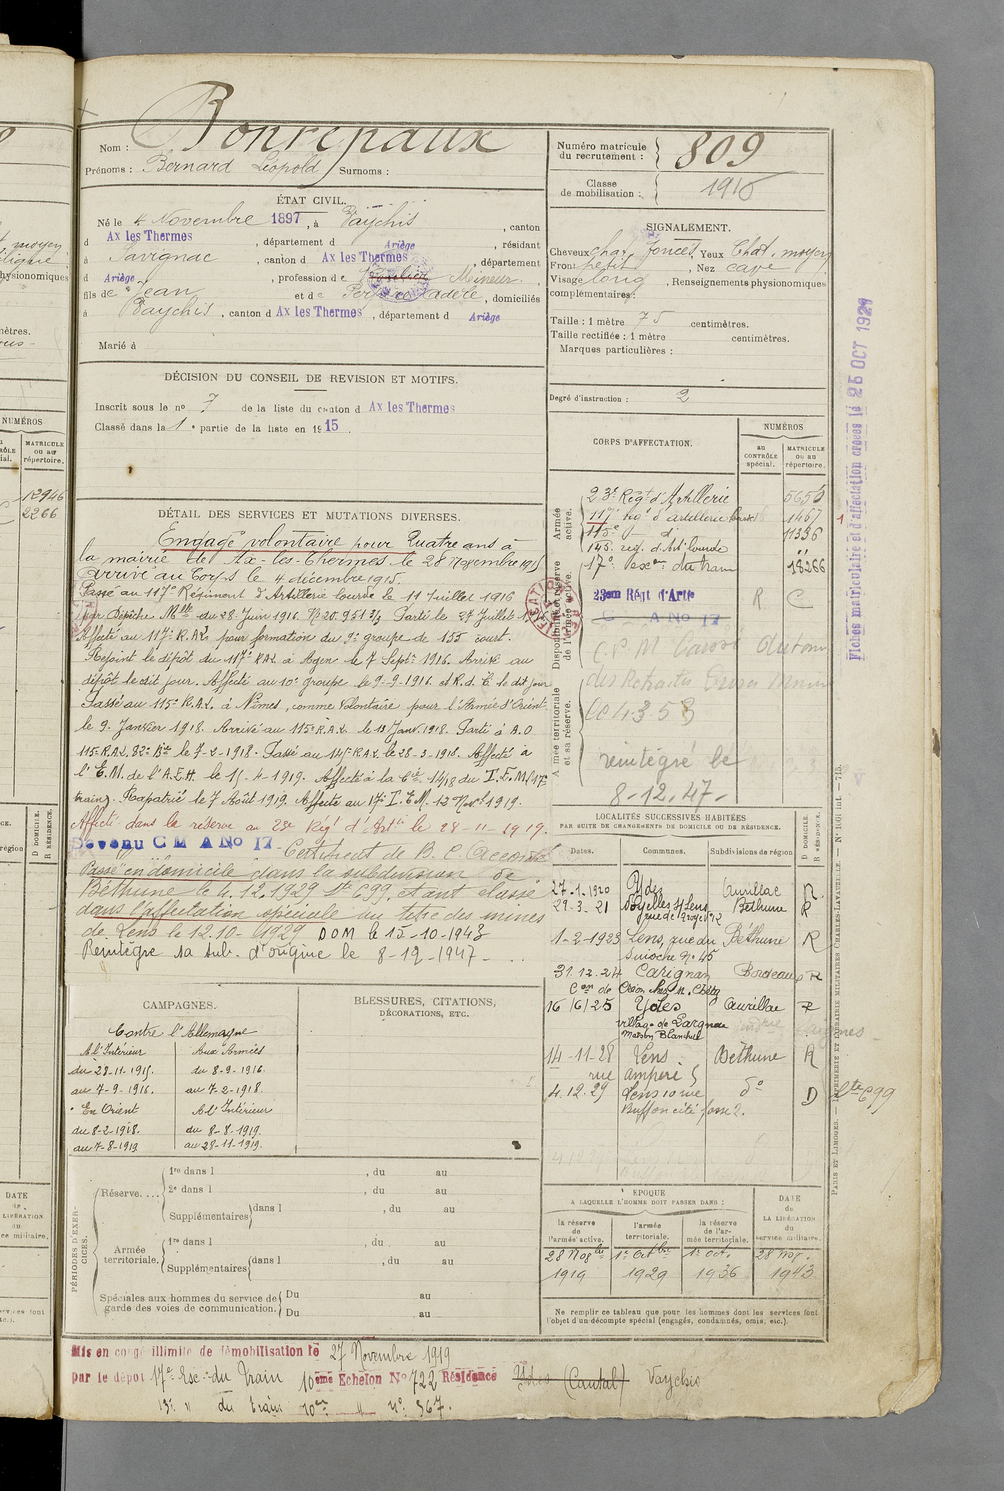 Nom : Bonrepaux
Prénoms : Bernard Léopold Surnoms :
Numéro matricule du recrutement : 809
Classe de mobilisation : 1915
ÉTAT CIVIL.
Né le 4 Novembre 1897, à Vaychis, canton
d Ax les Thermes, département d Ariège, résidant
à Savignac, canton d Ax les Thermes, département
d Ariège, profession de Mineur
fils de Jean et de domiciliés
à Vaychis, canton d Ax les Thermes, département d Ariège
Marié à
SIGNALEMENT.
Cheveux chat. foncé, Yeux Chat. moyen
Front petit, Nez cave
Visage long, Renseignements physionomiques
complémentaires :
Taille : 1 mètre 75 centimètres.
Taille rectifiée : 1 mètre centimètres.
Marques particulières :
Degré d'instruction : 2
DÉCISION DU CONSEIL DE REVISION ET MOTIFS.
Inscrit sous le no 7 de la liste du canton d Ax les Thermes
Classé dans la 1e partie de la liste en 1915
DÉTAIL DES SERVICES ET MUTATIONS DIVERSES.
Engagé volontaire pour Quatre ans à
la mairie de Ax-les-Thermes le 28 Novembre 1915
Arrivé au Corps le 4 décembre 1915.
Passé au 117e Régiment d'Artillerie Lourde le 11 Juillet 1916
par Dépêche Mlle du 28 Juin 1916 No 20.951 3/3 Parti le 27 Juillet 1916
Affecté au 117e R.A.L. pour formation du 9e groupe de 155 court.
Rejoint le dépôt du 117e R.A.L. à Agen le 7 Septe 1916. Arrivé au
dépôt le dit jour. Affecté au 10e groupe le 9-9-1916 et R.d.C. le dit jour
Passé au 115e R.A.L. à Nîmes, comme volontaire pour l'Armée d'Orient
le 9 Janvier 1918. Arrivé au 115e R.A.L. le 10 Janv. 1918. Parti à A.O.
115e R.A.L. 82e Bie le 7-2-1918. Passé au 145e R.A.L. le 28-3-1918. Affecté à
l'E.M. de l'A.E.H. le 15-4-1919. Affecté à la Cie 14/18 du T.E.M. (17e
train). Rapatrié le 7 Août 1919. Affecté au 17e T.E.M. 12 Novbre 1919.
Affecté dans la réserve au 23e Régt d'Artie le 28-11-1919.
Devenu C M A No 17 - Certificat de B. C. Accordé
Passé "en domicile" dans la subdivision de
Béthune le 4.12.1929 Lte 699, étant classé
dans l'affectation spéciale au titre des mines
de Lens le 12.10-1929 DOM le 15-10-1943
Réintégré sa sub. d'origine le 8-12-1947-
CORPS D'AFFECTATION.
NUMÉROS
au CONTRÔLE spécial.
MATRICULE ou au répertoire.
Armée active.
23e Régt d'Artillerie 5650
117e Régt d'artillerie lourde 1467
115e d 11336
145e rég. d'Art. lourde "
17e Escon du train 13266
Disponibilité et réserve de l'armée active.
23em Régt d'Artie R C
C A No 17
Armée territoriale et sa réserve.
réintégré le
8-12.47-
Fiches matriculaire et d'affectation créées le 25 OCT 1929
LOCALITÉS SUCCESSIVES HABITÉES
PAR SUITE DE CHANGEMENTS DE DOMICILE OU DE RÉSIDENCE.
Dates. Communes. Subdivisions de région D DOMICILE. R RÉSIDENCE.
27-1-1920 Ydes Aurillac R
29-3-21 Noyelles s/ Lens Béthune R
1-2-1923 Lens, rue du Béthune R
31.12.24 Carignan Bordeaux R
16/6/25 Ydes Aurillac R
village de Largnac
maison Blanchet
14-11-28 Lens Béthune R
rue Ampère 5
4.12.29 Lens 10 rue do D Lte 699
Buffon cité fosse 2.
CAMPAGNES.
Contre l'Allemagne
A l'Intérieur Aux Armées
du 28-11-1915. du 8-9-1916.
au 7-9-1916. au 7-2-1918.
En Orient A l'Intérieur
du 8-2-1918. du 8-8-1919.
au 7-8-1919 au 28-11-1919.
BLESSURES, CITATIONS,
DÉCORATIONS, ETC.
PÉRIODES D'EXERCICES.
Réserve....
1re dans l , du au
2e dans l , du au
Supplémentaires dans l , du au
Armée territoriale.
1re dans l , du au
Supplémentaires dans l , du au
Spéciales aux hommes du service de garde des voies de communication.
Du au
Du au
ÉPOQUE
A LAQUELLE L'HOMME DOIT PASSER DANS :
la réserve de l'armée active.
l'armée territoriale.
la réserve de l'armée territoriale.
DATE de LA LIBÉRATION du service militaire.
28 Novbre 1919
1er Octbre 1929
1er oct. 1936
28 Nov. 1943
Ne remplir ce tableau que pour les hommes dont les services font
l'objet d'un décompte spécial (engagés, condamnés, omis, etc.).
PARIS ET LIMOGES. — IMPRIMERIE ET LIBRAIRIE MILITAIRES CHARLES-LAVAUZELLE.
Mis en congé illimité de démobilisation le 27 Novembre 1919
par le dépôt 17e Esc. du Train 10eme Echelon No 722 Résidence Ydes (Cantal) Vaychis
13e " du train 10e " no 567.